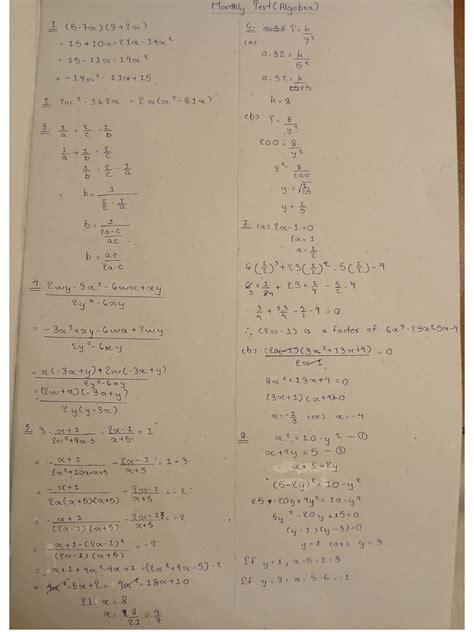 Monthly Test (Algebra)
1. (5-7x)(3+2x)
= 15+10x-21x-14x²
= 15-11x-14x²
= -14x²-11x+15
2. 2x³-162x = 2x(x²-81x)
3. 1/a = 2/c - 1/b
1/a + 1/b = 2/c
1/b = 2/c - 1/a
b = 1/(2/c - 1/a)
b = 1/((2a-c)/ac)
b = ac/(2a-c)
4. (2wy-3x²-6wx+xy)/(2y²-6xy)
= (-3x²+xy-6wx+2wy)/(2y²-6xy)
= (x(-3x+y)+2w(-3x+y))/(2y²-6xy)
= ((2w+x)(-3x+y))/(2y(y-3x))
5. 3 - (x+1)/(2x²+9x-5) - (2x-1)/(x+5) = 1
= -(x+1)/(2x²+10x-x-5) - (2x-1)/(x+5) = 1-3
= -(x+1)/(2x(x+5)(x+5)) - (2x-1)/(x+5) = -2
= -(x+1)/((2x-1)(x+5)) - (2x-1)/(x+5) = -2
= (x+1-(2x-1)²)/((2x-1)(x+5)) = -2
= x+1+4x²-4x+1 = (2x²+9x-5)-2
= 4x²-5x+2 = 4x²-18x+10
21x = 8
6. P = k/y²
(a)
0.32 = k/5²
0.32 = k/25
k = 8
(b) P = 8/y²
200 = 8/y²
y² = 8/200
y = √(1/25)
y = 1/5
7. (a) 2x-1=0
2x = 1
6(1/2)³+23(1/2)²-5(1/2)-4
3/4 + 23/4 - 5/2 - 4 = 0
∴ (2x-1) is a factor of
(b) (2x-1)(3x²+13x+4) = 0
3x²+13x+4=0
(3x+1)(x+4)=0
x = -1/3 (or) x = -4
8. x² = 10-y² - ①
x+2y = 5 - ②
x = 5-2y
(5-2y)² = 10-y²
25-20y+4y² = 10-y²
5y²-20y+15=0
(y-1)(y-3)=0
y=1 (or) y=3
If y=1, x=5-2=3
If y=3, x=5-6=-1